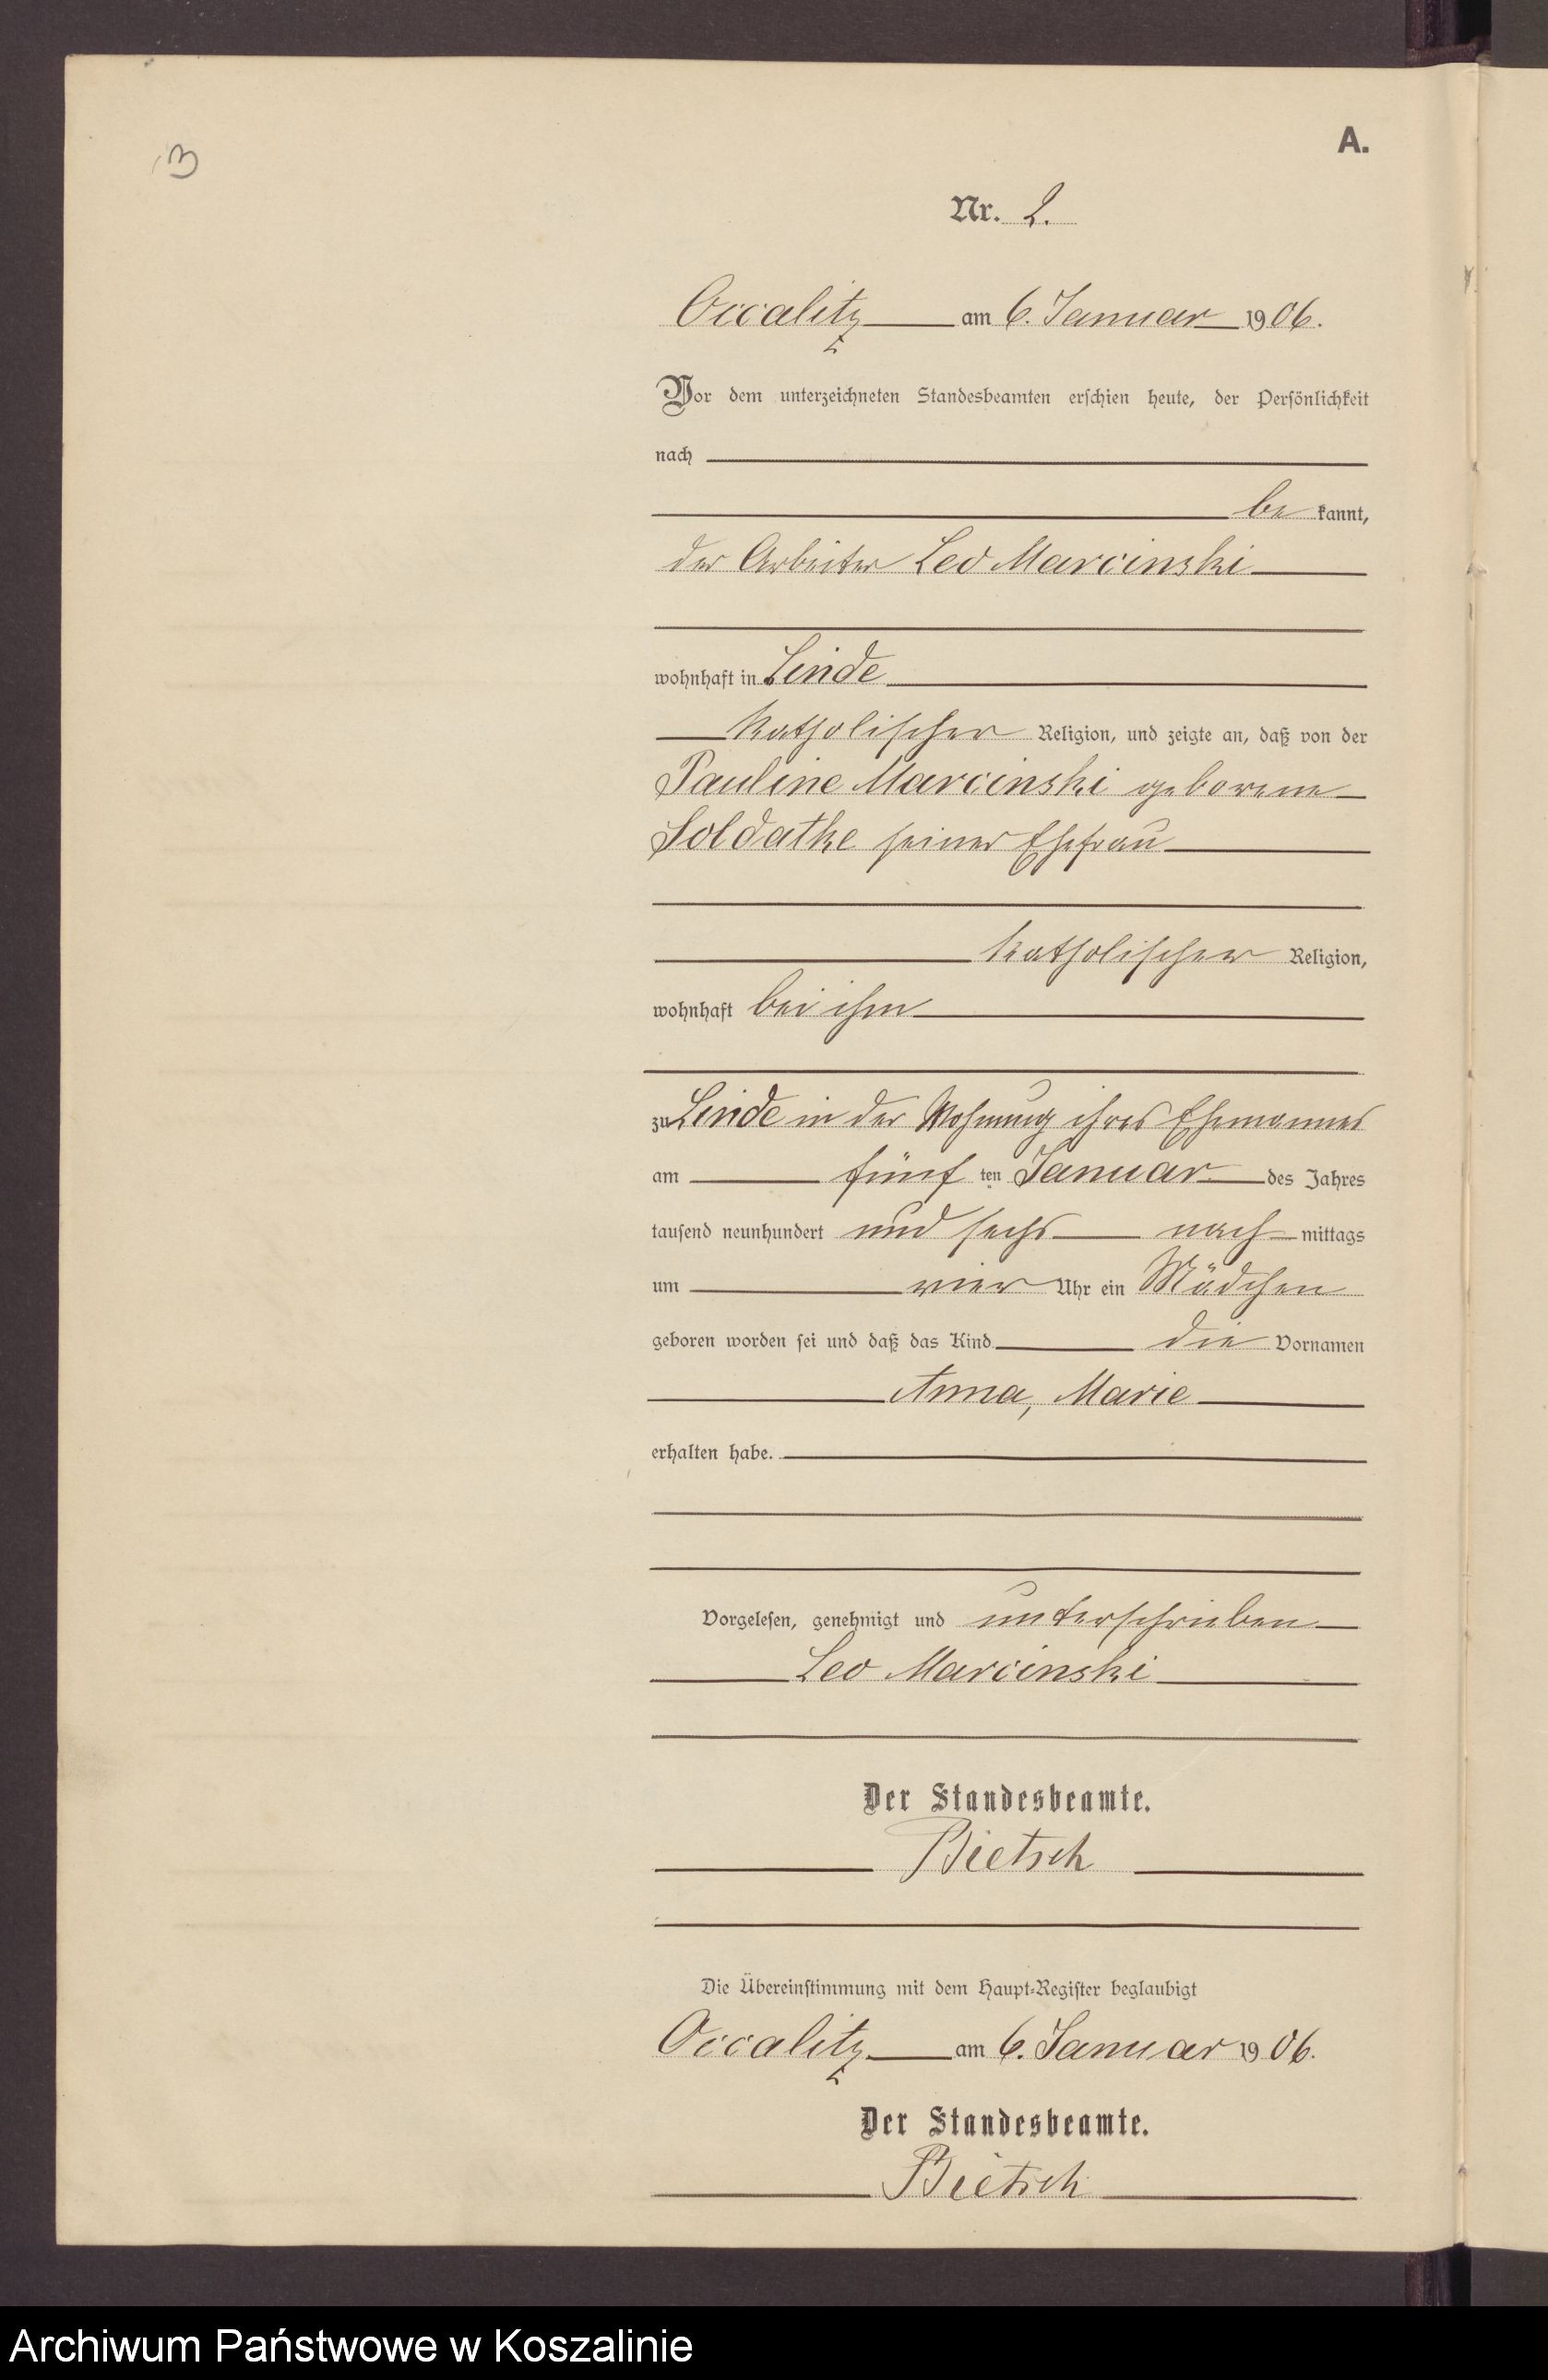 3
A.
Nr. 2.
Occalitz am 6. Januar 1906.
Vor dem unterzeichneten Standesbeamten erschien heute, der Persönlichkeit
nach
be kannt,
der Arbeiter Leo Marcinski
wohnhaft in Linde
katholischer Religion, und zeigte an, daß von der
Pauline Marcinski geborene
Soldatke seiner Ehefrau
katholischer Religion,
wohnhaft bei ihm
zu Linde in der Wohnung ihres Ehemannes
am fünf ten Januar des Jahres
tausend neunhundert und sechs nach mittags
um vier Uhr ein Mädchen
geboren worden sei und daß das Kind die Vornamen
Anna, Marie
erhalten habe.
Vorgelesen, genehmigt und unterschrieben
Leo Marcinski
Der Standesbeamte.
Bietsch
Die Übereinstimmung mit dem Haupt-Register beglaubigt
Occalitz am 6. Januar 1906.
Der Standesbeamte.
Bietsch
Archiwum Państwowe w Koszalinie